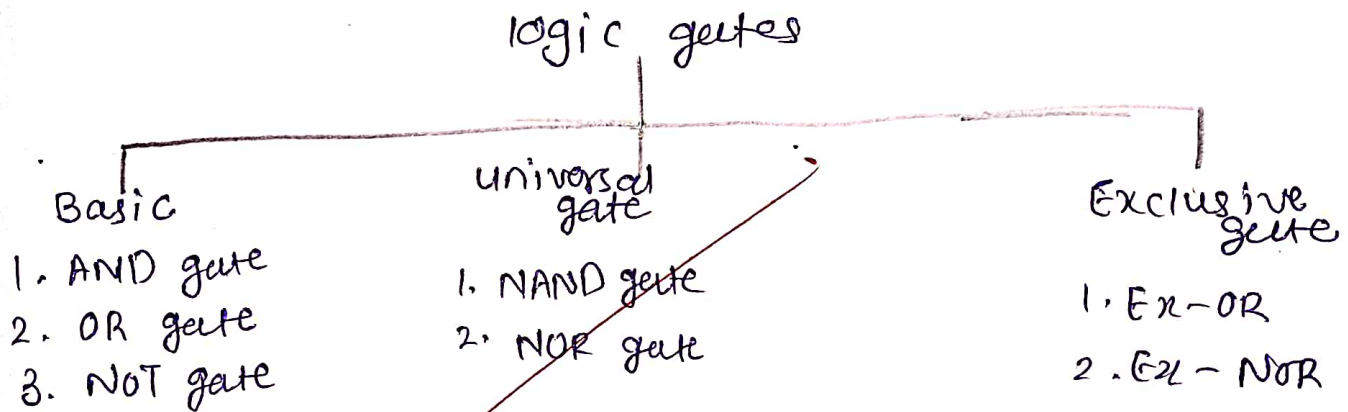 logic gates
Basic
1. AND gate
2. OR gate
3. NOT gate
universal
gate
1. NAND gate
2. NOR gate
Exclusive
gate
1. Ex-OR
2. Ex-NOR